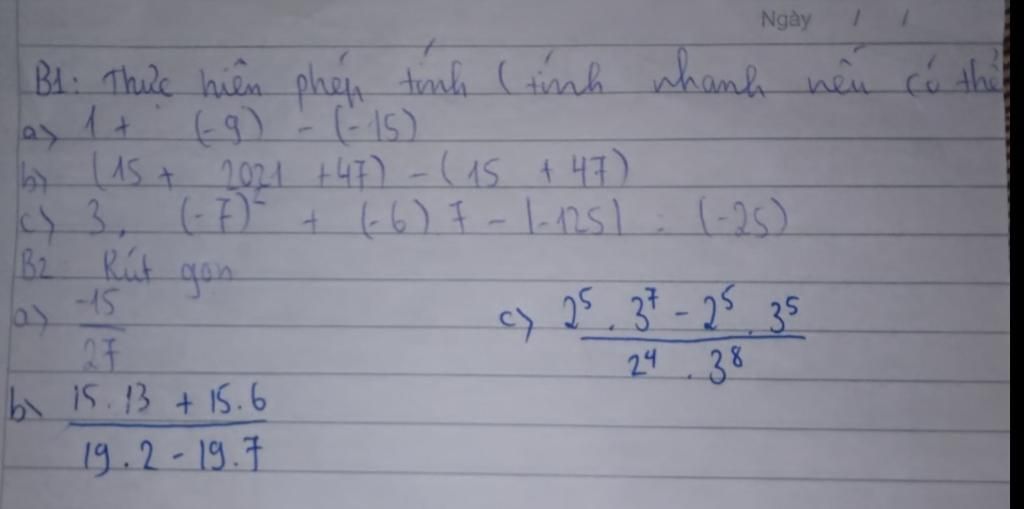 Ngày / /
B1: Thực hiện phép tính (tính nhanh nếu có thể
a) 1 + (-9) - (-15)
b) (15 + 2021 + 47) - (15 + 47)
c) 3. (-7)² + (-6) 7 - |-125| : (-25)
B2: Rút gọn
a) -15/27
c) 2⁵ . 3⁷ - 2⁵ . 3⁵ / 2⁴ . 3⁸
b) 15.13 + 15.6 / 19.2 - 19.7